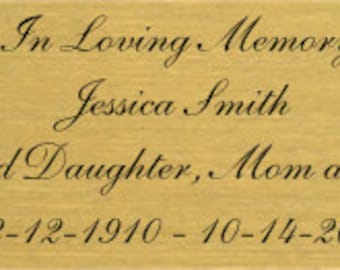 In Loving Memory
Jessica Smith
Daughter, Mom
-12-1910 - 10-14-20